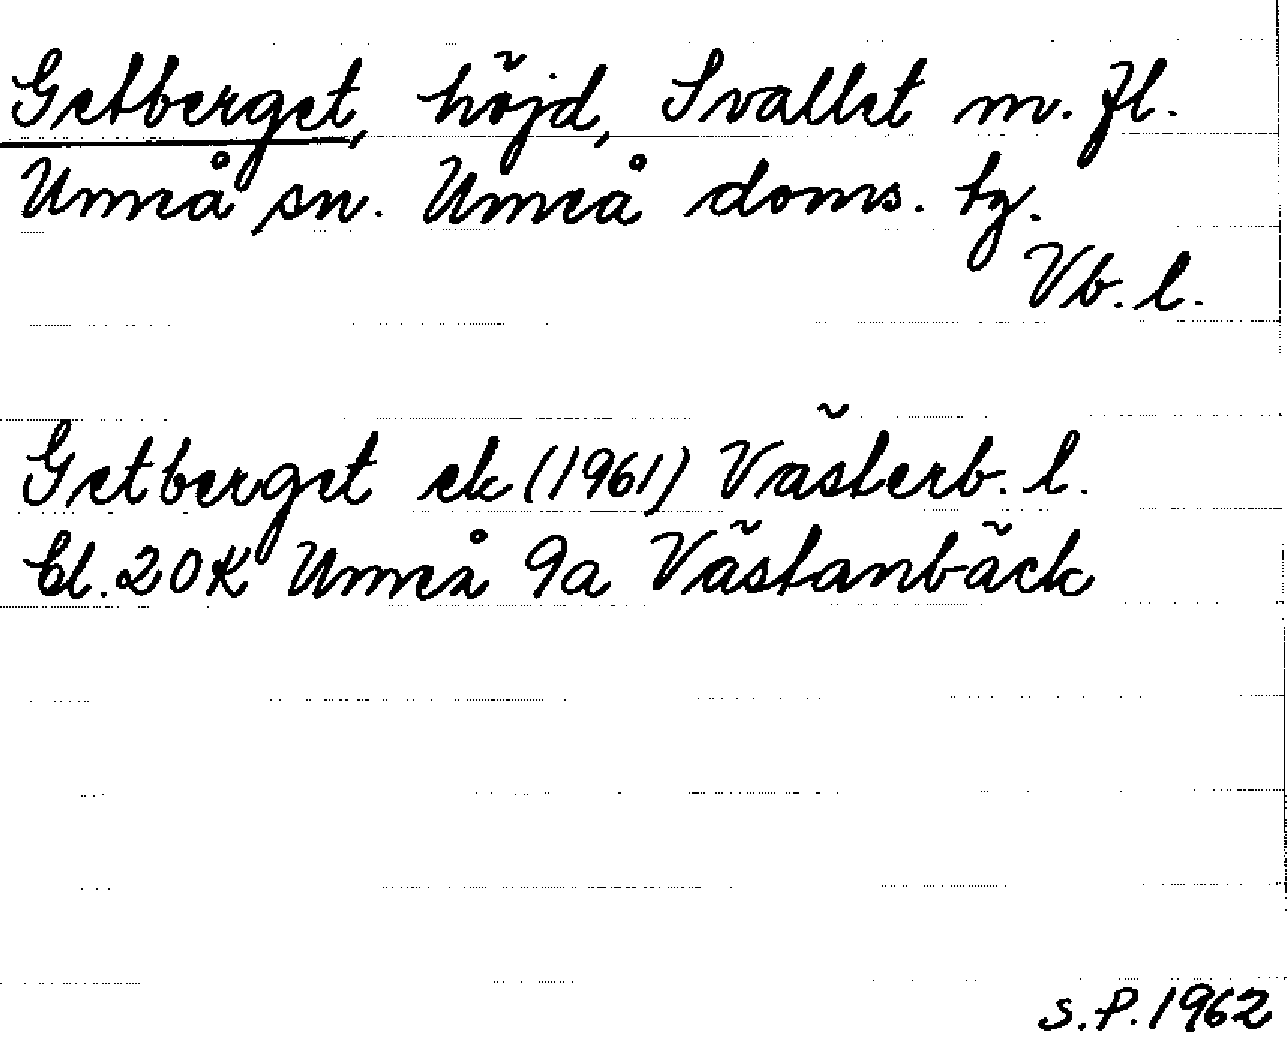 Getberget, höjd, Svallet m. fl.
Umeå sn. Umeå doms. tg.
Vb. l.
Getberget ek (1961) Västerb. l.
bl. 20K Umeå 9a Västanbäck
S.P. 1962